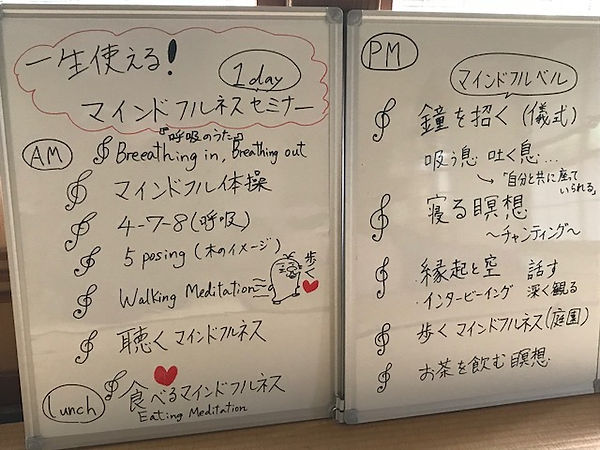 一生使える！
1day
マインドフルネスセミナー
AM
『呼吸のうた』
Breeathing in, Breathing out
マインドフル体操
4-7-8(呼吸)
5 posing (木のイメージ)
Walking Meditation
歩く
聴くマインドフルネス
Lunch
食べるマインドフルネス
Eating Meditation
PM
マインドフルベル
鐘を招く(儀式)
吸う息 吐く息…
→「自分と共に座って
いられる」
寝る瞑想
～チャンティング～
縁起と空 話す
・インタービーイング 深く観る
歩くマインドフルネス(庭園)
お茶を飲む瞑想